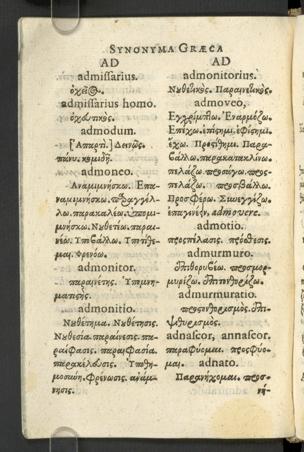 SYNONYMA GRÆCA
AD
admissarius.
ὀχεῖος.
admissarius homo.
ὀχευτικός.
admodum.
πάνυ. κομιδῇ.
admoneo.
Ἀναμιμνήσκω. Ἐπα-
ναμιμνήσκω. παραγγέλ-
λω. παρακαλέω. ὑπομι-
μνήσκω. Νουθετέω. παραι-
νέω. Ὑποβάλλω. Ὑποτίθε-
μαι. Φρενόω.
admonitor.
παραινέτης. Ὑπομνη-
ματιστής.
admonitio.
Νουθέτημα. Νουθέτησις.
Νουθεσία. παραίνεσις. πα-
ραίφασις. παραιφασία.
παρακέλευσις. Ὑποθη-
μοσύνη. Φρένωσις. ἀνάμ-
νησις.
AD
admonitorius.
Νουθετικός. Παραινετικός.
admoveo,
Ἐγχρίμπτω. Ἐναρμόζω.
Ἐπέχω. ἐπίσημι. ἐφίσημι.
ἔχω. Προστίθημι. Παρα-
βάλλω. παρακατακλίνω.
πελάζω. προσάγω. προσ-
πελάζω. προσβάλλω.
Προσφέρω. Συνεγγίζω.
ἐπαγινεῖν, admovere.
admotio.
προσπέλασις. πρόσθεσις.
admurmuro.
Ἐπιθορυβέω. προσμορ-
μυρίζω. Ἐπιτονθορίζω.
admurmuratio.
προστονθορισμός. Ἐπι-
ψιθυρισμός.
adnascor, annascor.
παραφύομαι. προσφύο-
μαι.
adnato.
Παρανήχομαι. προσ-
νή-